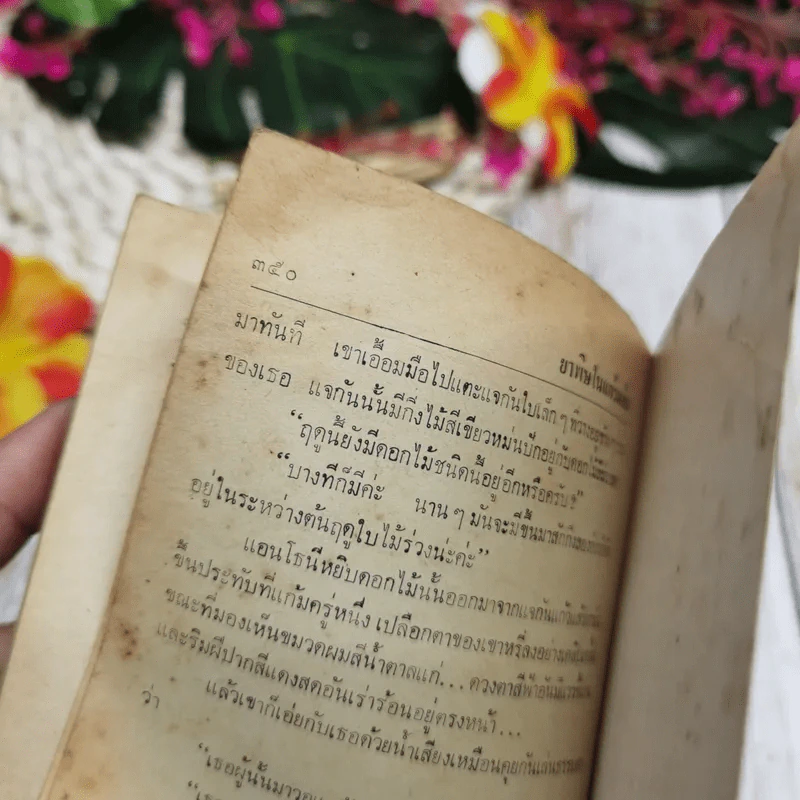 ๓๕๐
ยาพิษในแก้ว
มาทันที เขาเอื้อมมือไปแตะแจกันใบเล็ก ๆ
ของเธอ แจกันนั้นมีกิ่งไม้สีเขียวหม่นปักอยู่กับดอกไม้
“ฤดูนี้ยังมีดอกไม้ชนิดนี้อยู่อีกหรือครับ?”
“บางทีก็มีค่ะ นาน ๆ มันจะมีขึ้นมาสักกิ่ง
อยู่ในระหว่างต้นฤดูใบไม้ร่วงน่ะค่ะ”
แอนโธนีหยิบดอกไม้นั้นออกมาจากแจกัน
ขึ้นประทับที่แก้มครู่หนึ่ง เปลือกตาของเขาหรี่ลงอย่าง
ขณะที่มองเห็นขมวดผมสีน้ำตาลแก่... ดวงตาสีฟ้า
และริมฝีปากสีแดงสดอันเร่าร้อนอยู่ตรงหน้า...
แล้วเขาก็เอ่ยกับเธอด้วยน้ำเสียงเหมือนคุยกันเล่น
ว่า
“เธอผู้นั้น
“เธอ